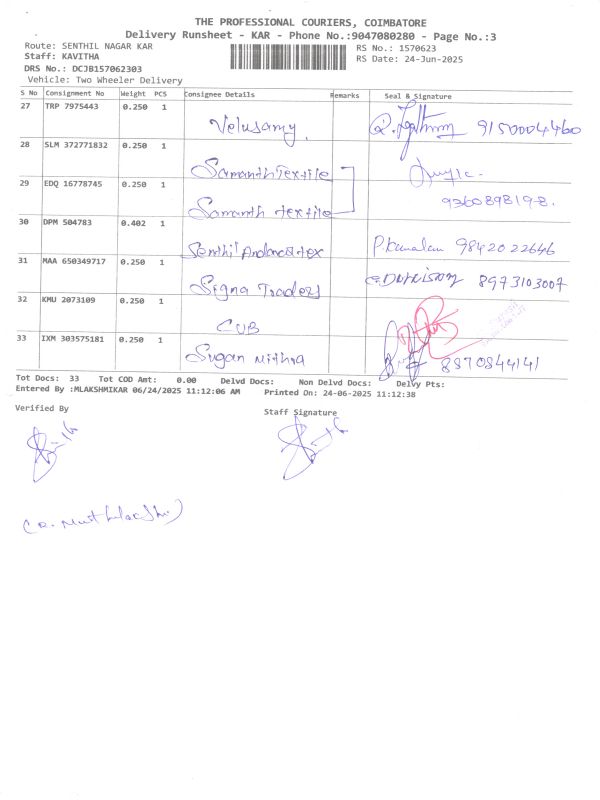 THE PROFESSIONAL COURIERS, COIMBATORE
Delivery Runsheet - KAR - Phone No.:9047080280 - Page No.:3
Route: SENTHIL NAGAR KAR
RS No.: 1570623
Staff: KAVITHA
RS Date: 24-Jun-2025
DRS No.: DCJB157062303
Vehicle: Two Wheeler Delivery
S No Consignment No Weight PCS Consignee Details Remarks Seal & Signature
27 TRP 7975443 0.250 1 Velusamy. 9150004460
28 SLM 372771832 0.250 1 Samanth Textile
29 EDQ 16778745 0.250 1 Samanth textile 936089819-8.
30 DPM 504783 0.402 1 Senthil tex P.Kamalam 9842022646
31 MAA 650349717 0.250 1 Signa Traders 8973103007
32 KMU 2073109 0.250 1 CUB
33 IXM 303575181 0.250 1 Sugan Mithra 8870844141
Tot Docs: 33 Tot COD Amt: 0.00 Delvd Docs: Non Delvd Docs: Delvy Pts:
Entered By :MLAKSHMIKAR 06/24/2025 11:12:06 AM Printed On: 24-06-2025 11:12:38
Verified By
Staff Signature